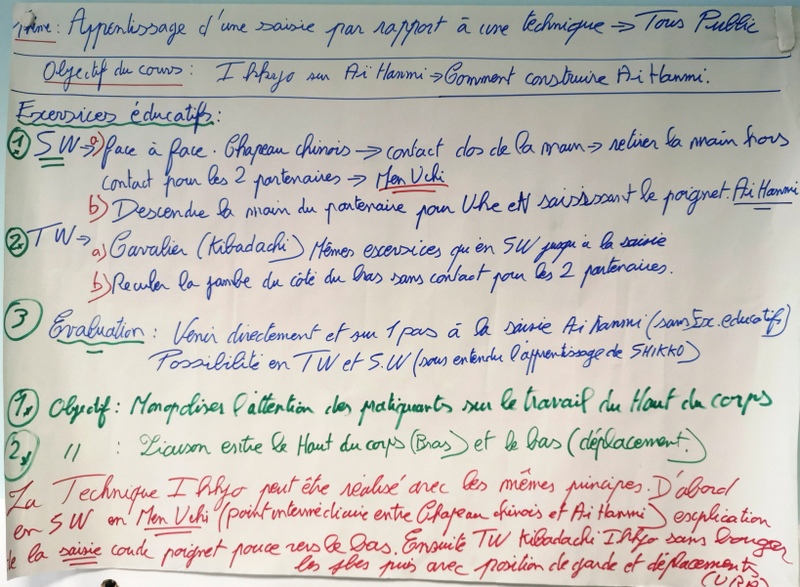 Thème: Apprentissage d'une saisie par rapport à une technique ⇒ Tous Public
Objectif du cours: Ikkyo sur Aï Hanmi → Comment construire Ai Hanmi.
Exercices éducatifs:
① SW → a) face à face. Chapeau chinois → contact dos de la main → retirer la main hors
contact pour les 2 partenaires → Men Uchi
b) Descendre la main du partenaire pour Uke et saisissant le poignet. Ai Hanmi
② TW → a) Cavalier (Kibadachi) Mêmes exercices qu'en SW jusqu'à la saisie
b) Reculer la jambe du côté du bras sans contact pour les 2 partenaires.
③ Evaluation: Venir directement et sur 1 pas à la saisie Ai Hanmi (sans Ex. educatifs)
Possibilité en TW et S.W (sous entendu l'apprentissage de SHIKKO)
① Objectif: Monopoliser l'attention des pratiquants sur le travail du Haut du corps
② " : Liaison entre le Haut du corps (Bras) et le bas (déplacement.)
La Technique Ikkyo peut être réalisé avec les mêmes principes. D'abord
en SW en Men Uchi (point intermédiaire entre Chapeau chinois et Ai Hanmi) explication
de la saisie coude poignet pouce vers le bas. Ensuite TW Kibadachi Ikkyo sans bouger
les jbes puis avec position de garde et déplacement